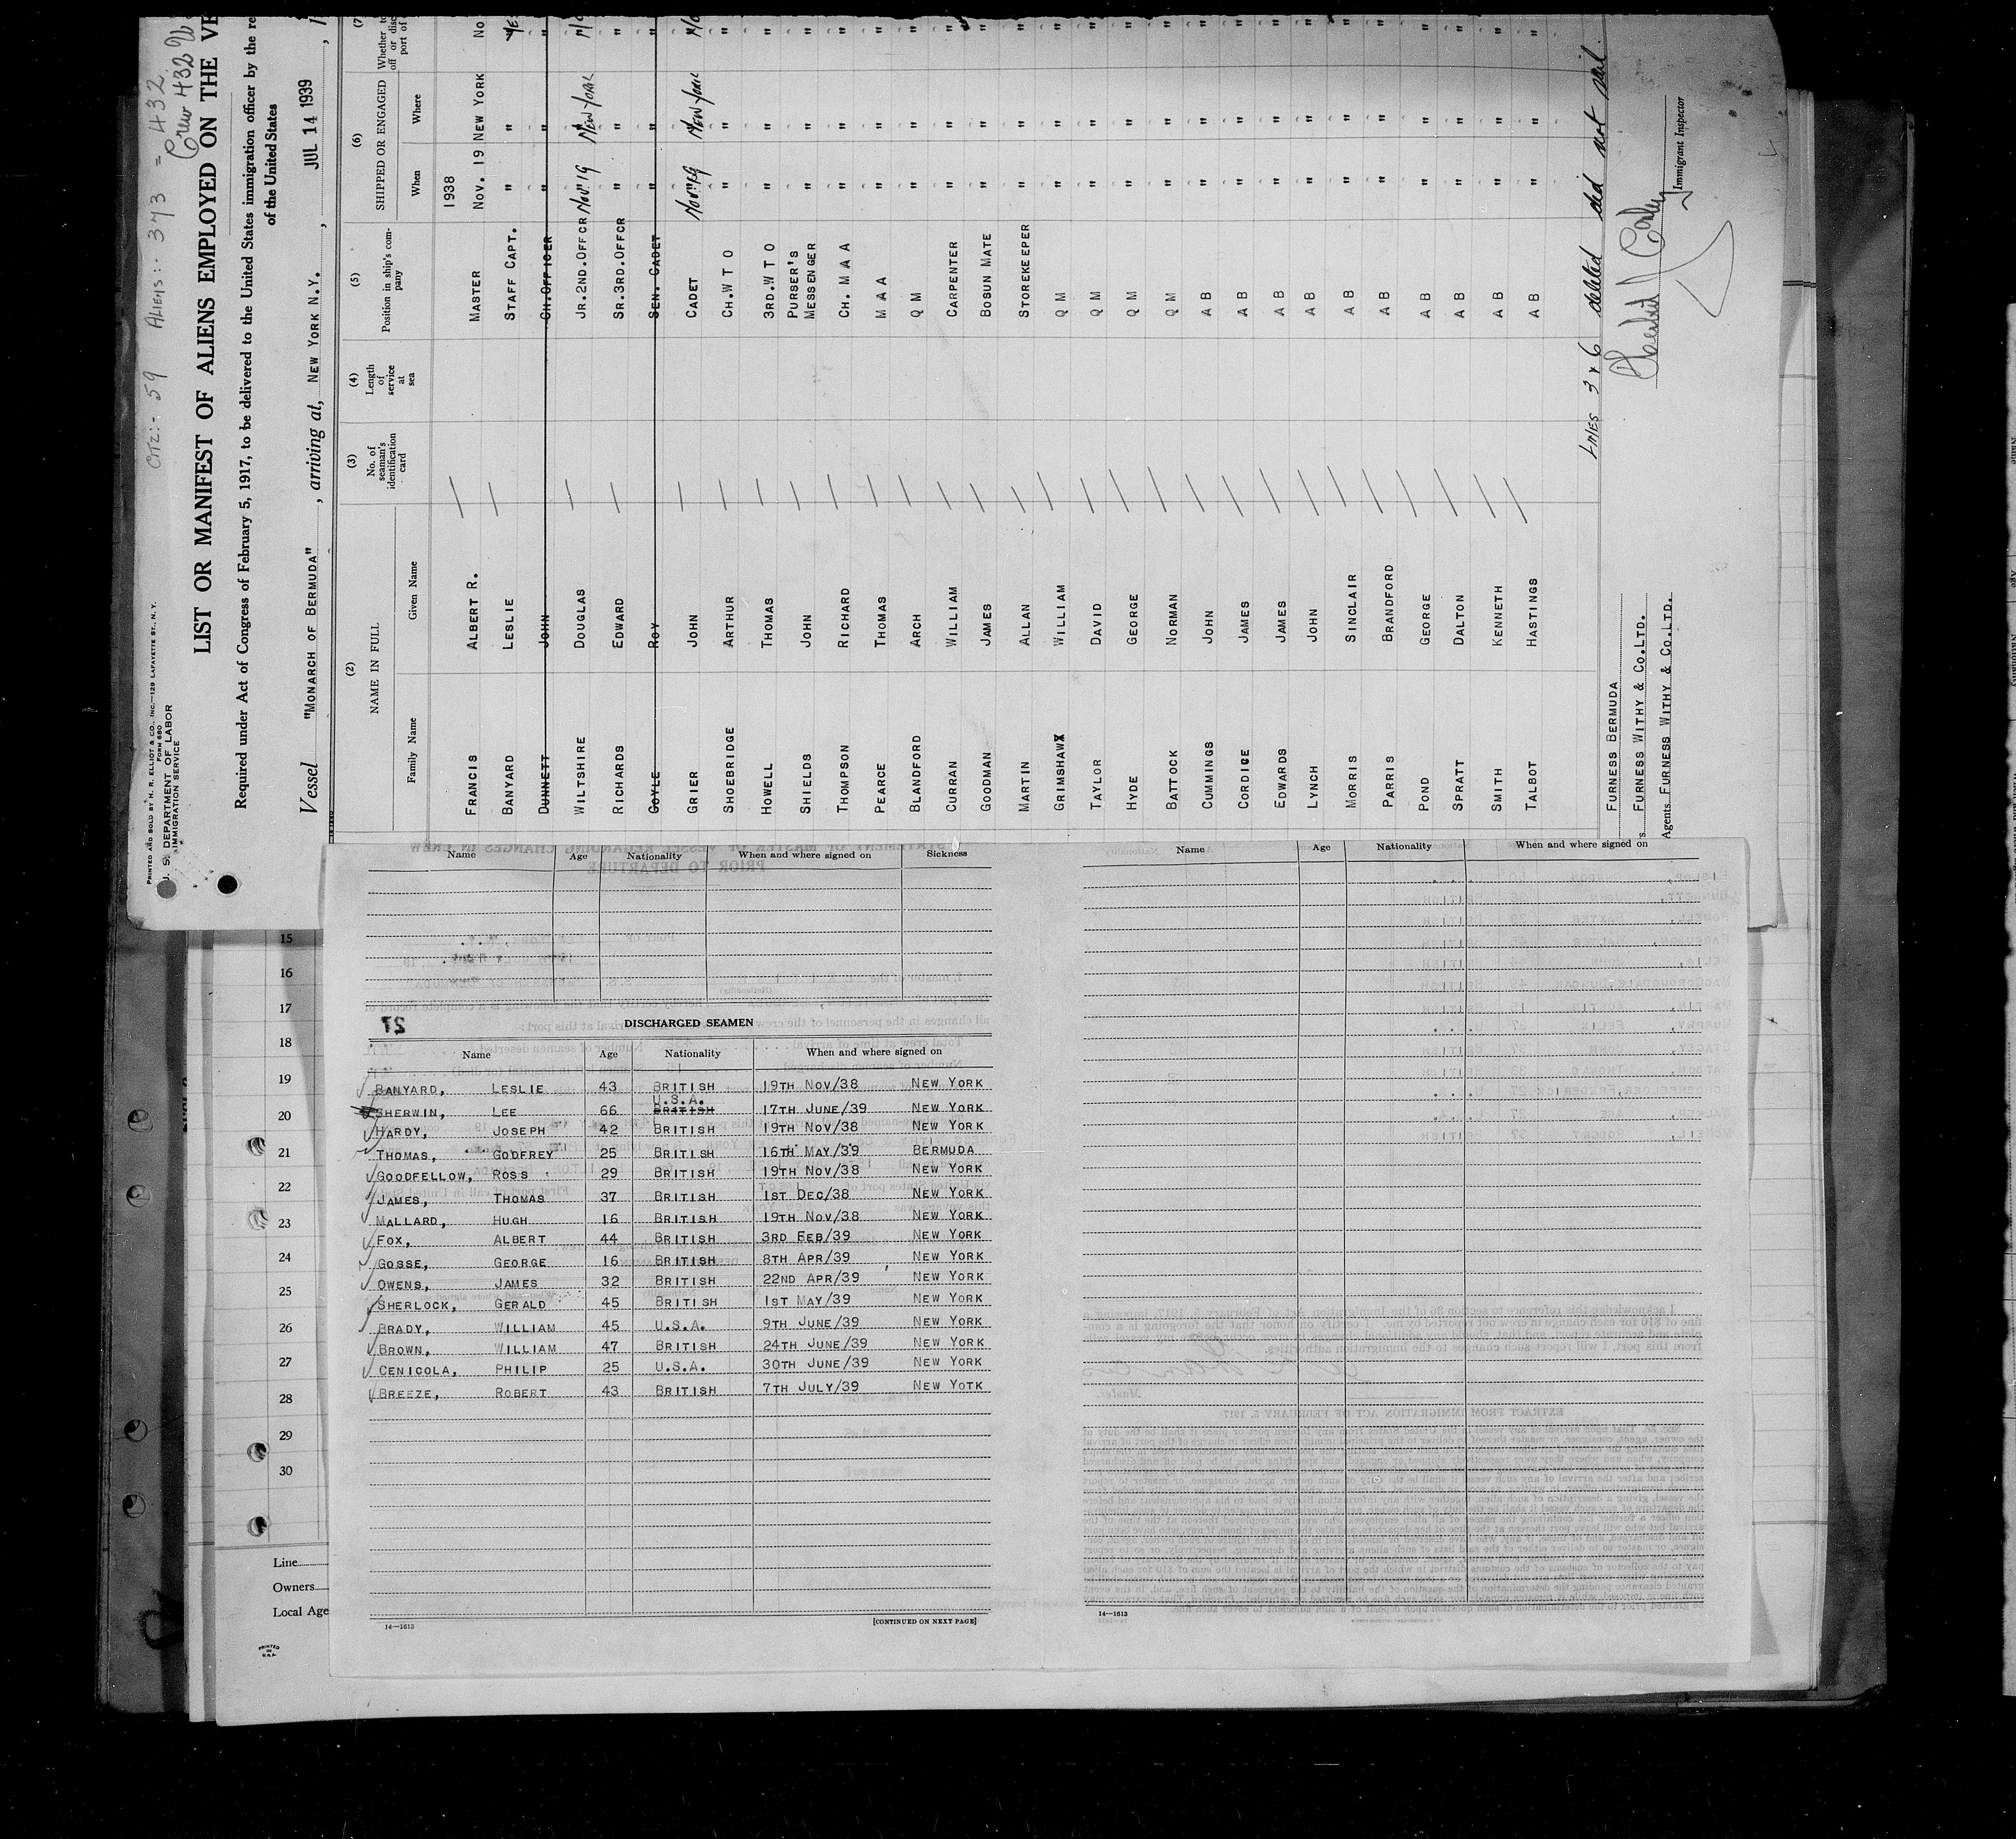 PRINTED AND SOLD BY H. R. ELLIOT & CO., INC.—129 LAFAYETTE ST., N. Y.
FORM 680
U. S. DEPARTMENT OF LABOR
IMMIGRATION SERVICE
CITZ:- 59 ALIENS:- 373 = 432
Crew 432
LIST OR MANIFEST OF ALIENS EMPLOYED ON THE VE
Required under Act of Congress of February 5, 1917, to be delivered to the United States immigration officer by the re
of the United States
Vessel "MONARCH OF BERMUDA" , arriving at, NEW YORK N.Y. , JUL 14 1939 , 1
(2) (3) (4) (5) (6) (7)
NAME IN FULL No. of seaman's identification card Length of service at sea Position in ship's company SHIPPED OR ENGAGED
Family Name Given Name When Where
1938
FRANCIS ALBERT R. MASTER NOV. 19 NEW YORK NO
BANYARD LESLIE STAFF CAPT. " " YES
DUNNETT JOHN CH.OFFICER " " "
WILTSHIRE DOUGLAS JR.2ND.OFFCR NOV. 19 NEW YORK NO
RICHARDS EDWARD SR.3RD.OFFCR " " "
COYLE ROY SEN. CADET " " "
GRIER JOHN CADET NOV 19 NEW YORK NO
SHOEBRIDGE ARTHUR CH.W T O " " "
HOWELL THOMAS 3RD.W T O " " "
SHIELDS JOHN PURSER'S MESSENGER " " "
THOMPSON RICHARD CH. M A A " " "
PEARCE THOMAS M A A " " "
BLANDFORD ARCH Q M " " "
CURRAN WILLIAM CARPENTER " " "
GOODMAN JAMES BOSUN MATE " " "
MARTIN ALLAN STOREKEEPER " " "
GRIMSHAW WILLIAM Q M " " "
TAYLOR DAVID Q M " " "
HYDE GEORGE Q M " " "
BATTOCK NORMAN Q M " " "
CUMMINGS JOHN A B " " "
CORDICE JAMES A B " " "
EDWARDS JAMES A B " " "
LYNCH JOHN A B " " "
MORRIS SINCLAIR A B " " "
PARRIS BRANDFORD A B " " "
POND GEORGE A B " " "
SPRATT DALTON A B " " "
SMITH KENNETH A B " " "
TALBOT HASTINGS A B " " "
Lines 3 & 6 deleted did not sail.
FURNESS BERMUDA
s FURNESS WITHY & CO.LTD.
Agents FURNESS WITHY & CO.LTD.
Immigrant Inspector
Name Age Nationality When and where signed on Sickness
DISCHARGED SEAMEN
Name Age Nationality When and where signed on
BANYARD, LESLIE 43 BRITISH 19TH NOV/38 NEW YORK
U.S.A.
SHERWIN, LEE 66 BRITISH 17TH JUNE/39 NEW YORK
HARDY, JOSEPH 42 BRITISH 19TH NOV/38 NEW YORK
THOMAS, GODFREY 25 BRITISH 16TH MAY/39 BERMUDA
GOODFELLOW, ROSS 29 BRITISH 19TH NOV/38 NEW YORK
JAMES, THOMAS 37 BRITISH 1ST DEC/38 NEW YORK
MALLARD, HUGH 16 BRITISH 19TH NOV/38 NEW YORK
FOX, ALBERT 44 BRITISH 3RD FEB/39 NEW YORK
GOSSE, GEORGE 16 BRITISH 8TH APR/39 NEW YORK
OWENS, JAMES 32 BRITISH 22ND APR/39 NEW YORK
SHERLOCK, GERALD 45 BRITISH 1ST MAY/39 NEW YORK
BRADY, WILLIAM 45 U.S.A. 9TH JUNE/39 NEW YORK
BROWN, WILLIAM 47 BRITISH 24TH JUNE/39 NEW YORK
CENICOLA, PHILIP 25 U.S.A. 30TH JUNE/39 NEW YORK
BREEZE, ROBERT 43 BRITISH 7TH JULY/39 NEW YOTK
14—1613 [CONTINUED ON NEXT PAGE]
Name Age Nationality When and where signed on
14—1613
15
16
17
18
19
20
21
22
23
24
25
26
27
28
29
30
Line
Owners
Local Age
PRINTED IN U.S.A.